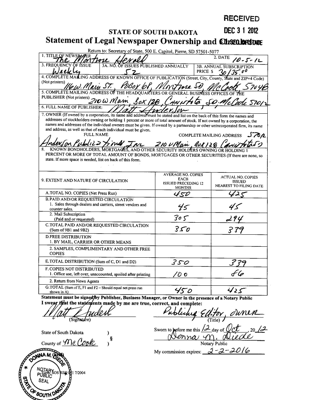 RECEIVED
DEC 31 2012
STATE OF SOUTH DAKOTA
Statement of Legal Newspaper Ownership and Circulation
Return to: Secretary of State, 500 E. Capitol, Pierre, SD 57501-5077
1. TITLE OF NEWSPAPER
The Montrose Herald
2. DATE
10-5-12
3. FREQUENCY OF ISSUE
Weekly
3A. NO. OF ISSUES PUBLISHED ANNUALLY
52
3B. ANNUAL SUBSCRIPTION PRICE $
4. COMPLETE MAILING ADDRESS OF KNOWN OFFICE OF PUBLICATION (Street, City, County, State and ZIP+4 Code) (Not Printers)
Main St. Montrose SD McCook 57048
5. COMPLETE MAILING ADDRESS OF THE HEADQUARTERS OF GENERAL BUSINESS OFFICES OF THE PUBLISHER (Not printer)
210 W Main Box 128 Canistota SD McCook
6. FULL NAME OF PUBLISHER
Matt Anderson
7. OWNER (If owned by a corporation, its name and address must be stated and list on the back of this form the names and addresses of stockholders owning or holding 1 percent or more of total amount of stock. If not owned by a corporation, the names and addresses of the individual owners must be given. If owned by partnership or other unincorporated firm, its name and address, as well as that of each individual must be given.
FULL NAME
COMPLETE MAILING ADDRESS
Anderson Publications Inc 210 W Main, Box 128 Canistota SD
8. KNOWN BONDHOLDERS, MORTGAGEES, AND OTHER SECURITY HOLDERS OWNING OR HOLDING 1 PERCENT OR MORE OF TOTAL AMOUNT OF BONDS, MORTGAGES OR OTHER SECURITIES (If there are none, so state. If more space is needed, list on back of this form.
9. EXTENT AND NATURE OF CIRCULATION
AVERAGE NO. COPIES EACH ISSUED PRECEDING 12 MONTHS
ACTUAL NO. COPIES ISSUED NEAREST TO FILING DATE
A. TOTAL NO. COPIES (Net Press Run) 450 425
B. PAID AND/OR REQUESTED CIRCULATION
1. Sales through dealers and carriers, street vendors and counter sales. 45 45
2. Mail Subscription (Paid and/or requested) 305 294
C. TOTAL PAID AND/OR REQUESTED CIRCULATION (Sum of 9B1 and 9B2) 350 339
D. FREE DISTRIBUTION
1. BY MAIL, CARRIER OR OTHER MEANS
2. SAMPLES, COMPLIMENTARY AND OTHER FREE COPIES
E. TOTAL DISTRIBUTION (Sum of C, D1 and D2) 350 339
F. COPIES NOT DISTRIBUTED
1. Office use, left over, unaccounted, spoiled after printing 100 86
2. Return from News Agents
G. TOTAL (Sum of E, F1 and F2 - Should equal net press run shown in A) 450 425
Statement must be signed by Publisher, Business Manager, or Owner in the presence of a Notary Public
I swear that the statements made by me are true, correct, and complete:
Matt Anderson
(Signature)
Publishing Editor, owner
(Title)
State of South Dakota )
County of McCook )
Sworn to before me this 12 day of Oct, 2012
Donna M. Diede
Notary Public
My commission expires: 2-2-2016
NOTARY PUBLIC
SEAL
STATE OF SOUTH DAKOTA